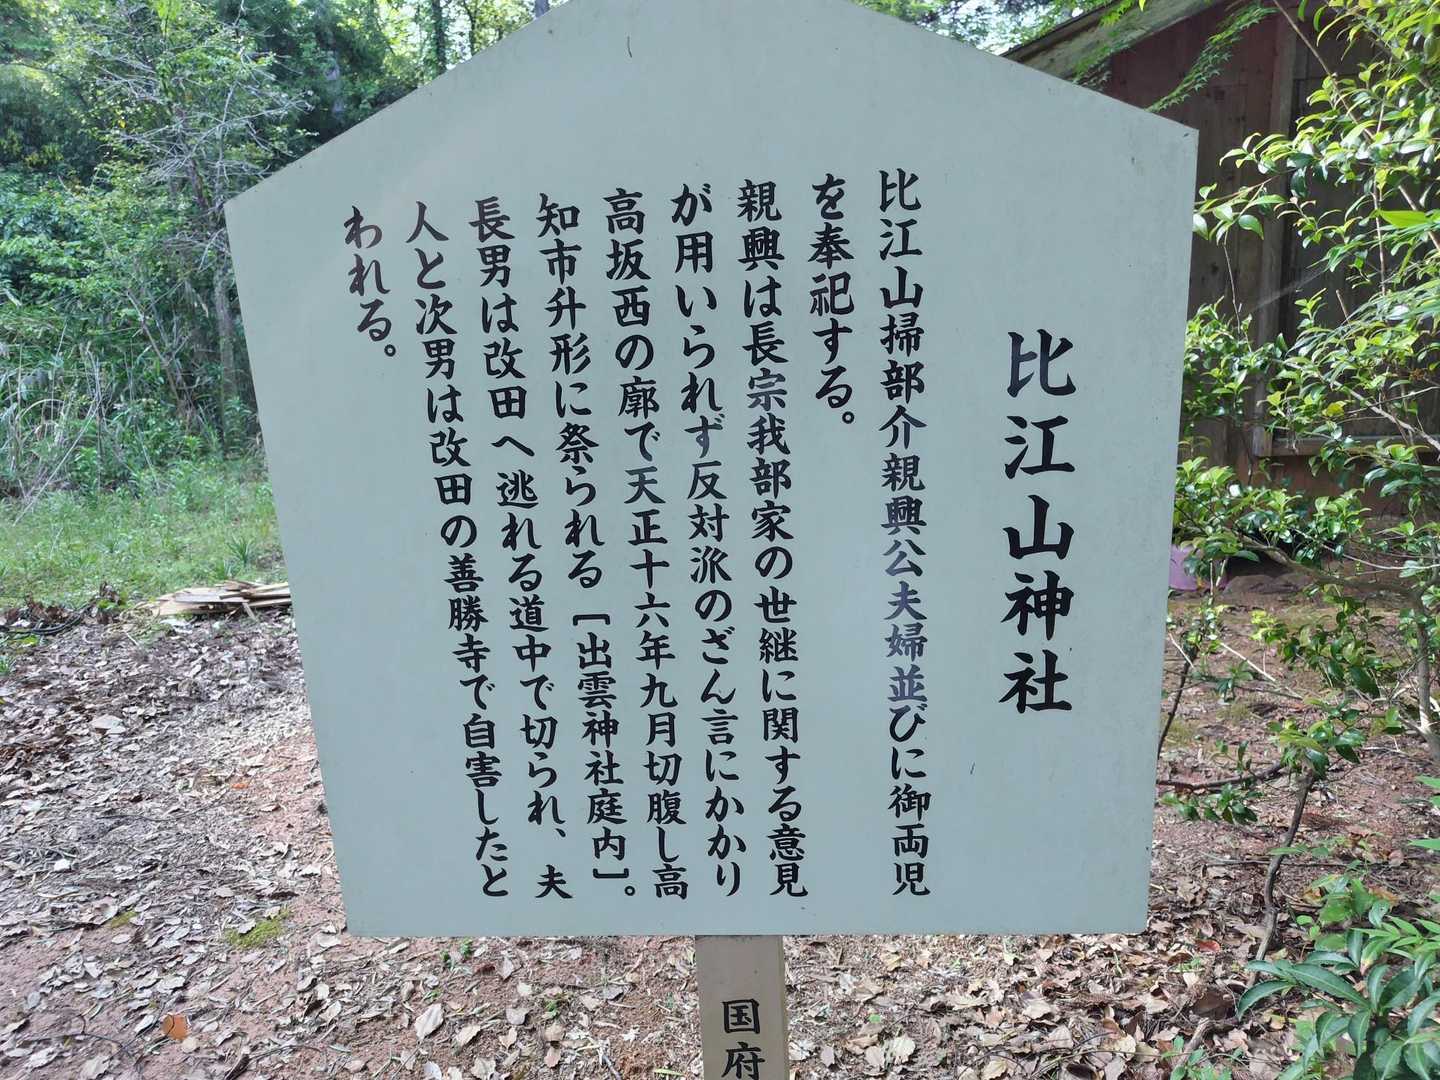 比江山神社
比江山掃部介親興公夫婦並びに御両児
を奉祀する。
親興は長宗我部家の世継に関する意見
が用いられず反対派のざん言にかかり
高坂西の廓で天正十六年九月切腹し高
知市升形に祭られる［出雲神社庭内］。
長男は改田へ逃れる道中で切られ、夫
人と次男は改田の善勝寺で自害したと
われる。
国府